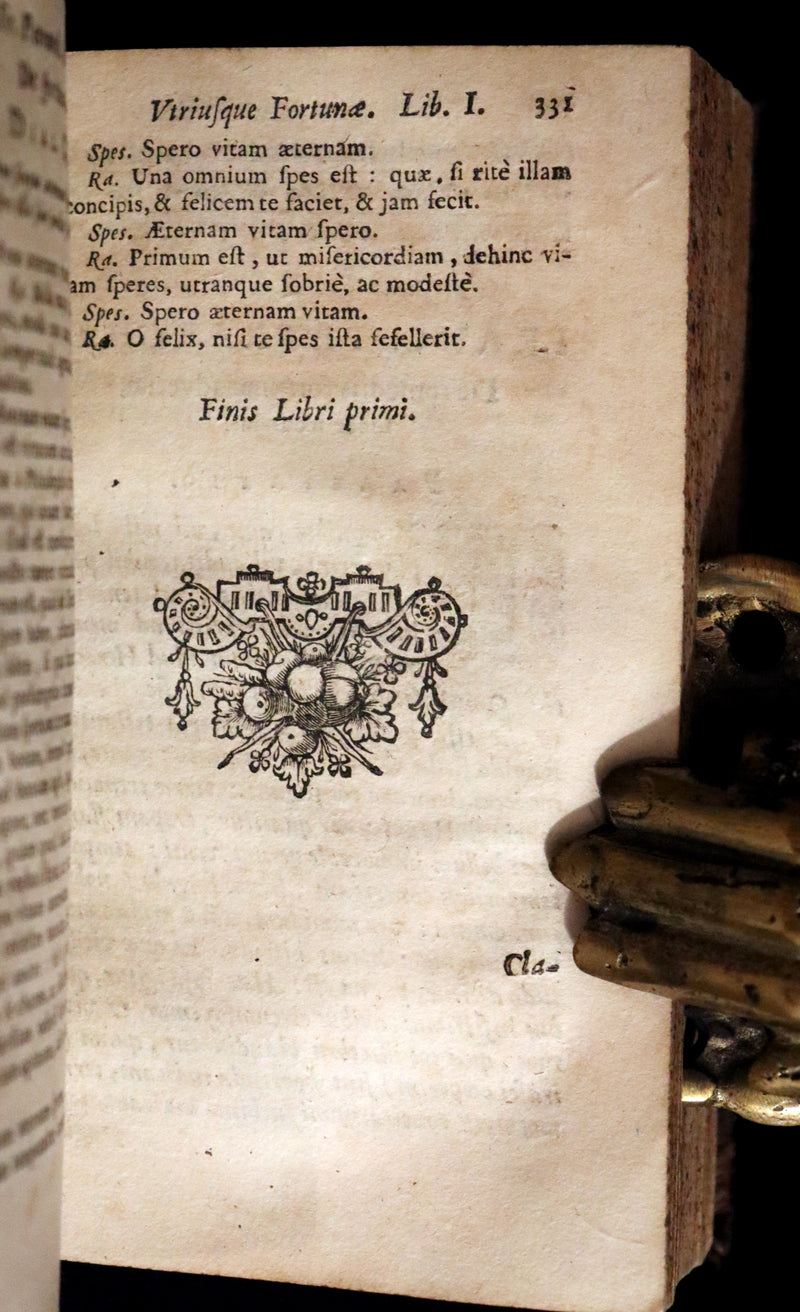 Vtriuſque Fortunæ. Lib. I. 331
Spes. Spero vitam æternam.
Ra. Una omnium ſpes eſt : quæ, ſi ritè illam
concipis, & felicem te faciet, & jam fecit.
Spes. Æternam vitam ſpero.
Ra. Primum eſt, ut miſericordiam, dehinc vi-
am ſperes, utranque ſobriè, ac modeſtè.
Spes. Spero æternam vitam.
Ra. O felix, niſi te ſpes iſta fefellerit.
Finis Libri primi.
Cla-